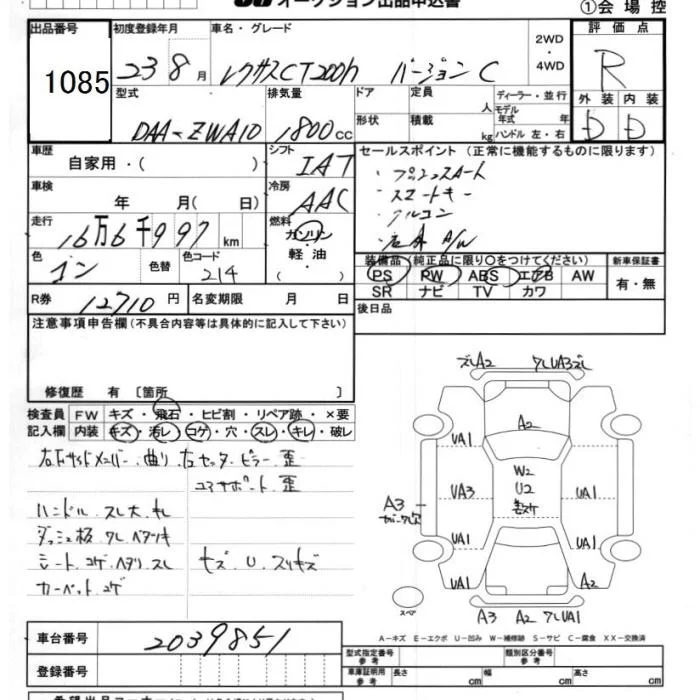 オークション出品申込書
①会場控
出品番号 初度登録年月 車名・グレード 2WD・4WD 評価点
1085 23 8月 レクサスCT200h バージョンC R
型式 排気量 ドア 定員 人 ディーラー・並行 外装 内装
DAA-ZWA10 1800cc 形状 積載 kg モデル年式 年 ハンドル 左・右 D D
車歴 自家用・( ) シフト IAT セールスポイント(正常に機能するものに限ります)
・プッシュスタート
車検 年 月( 日) 冷房 AAC ・スマートキー
・アルコン
走行 16万6千997km 燃料 ガソリン・軽油・( )
色 ゴン 色替 色コード 214 装備品(純正品に限り○をつけてください) 新車保証書
PS PW ABS エアB AW 有・無
SR ナビ TV カワ
R券 12710円 名変期限 月 日 後日品
注意事項申告欄(不具合内容等は具体的に記入して下さい)
修復歴 有〔箇所 〕
検査員記入欄 FW キズ・飛石・ヒビ割・リペア跡・×要
内装 キズ・汚レ・コゲ・穴・スレ・キレ・破レ
右下サイドメンバー曲り 左センターピラー歪
コアサポート歪
ハンドル スレ大 キレ
ダッシュ板 ワレ ベタツキ
シート コゲ ヘタリ スレ キズ U スリキズ
カーペット コゲ
A2 ワレUA3ズレ
A2
UA1 UA1
W2
U2
UA3 UA1
A3
UA1 UA1
UA1 A2
スペア
A3 A2 ワレUA1
A-キズ E-エクボ U-凹み W-補修跡 S-サビ C-腐食 XX-交換済
車台番号 2039851
型式指定番号 参考 類別区分番号 参考
登録番号 車庫証明用 参考 長さ 幅 高さ cm